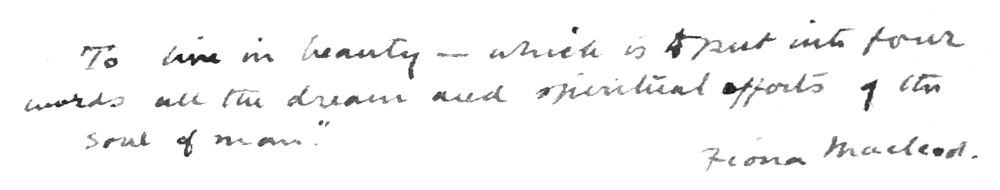 To live in beauty — which is to put into four
words all the dream and spiritual efforts of the
soul of man."
Fiona Macleod.